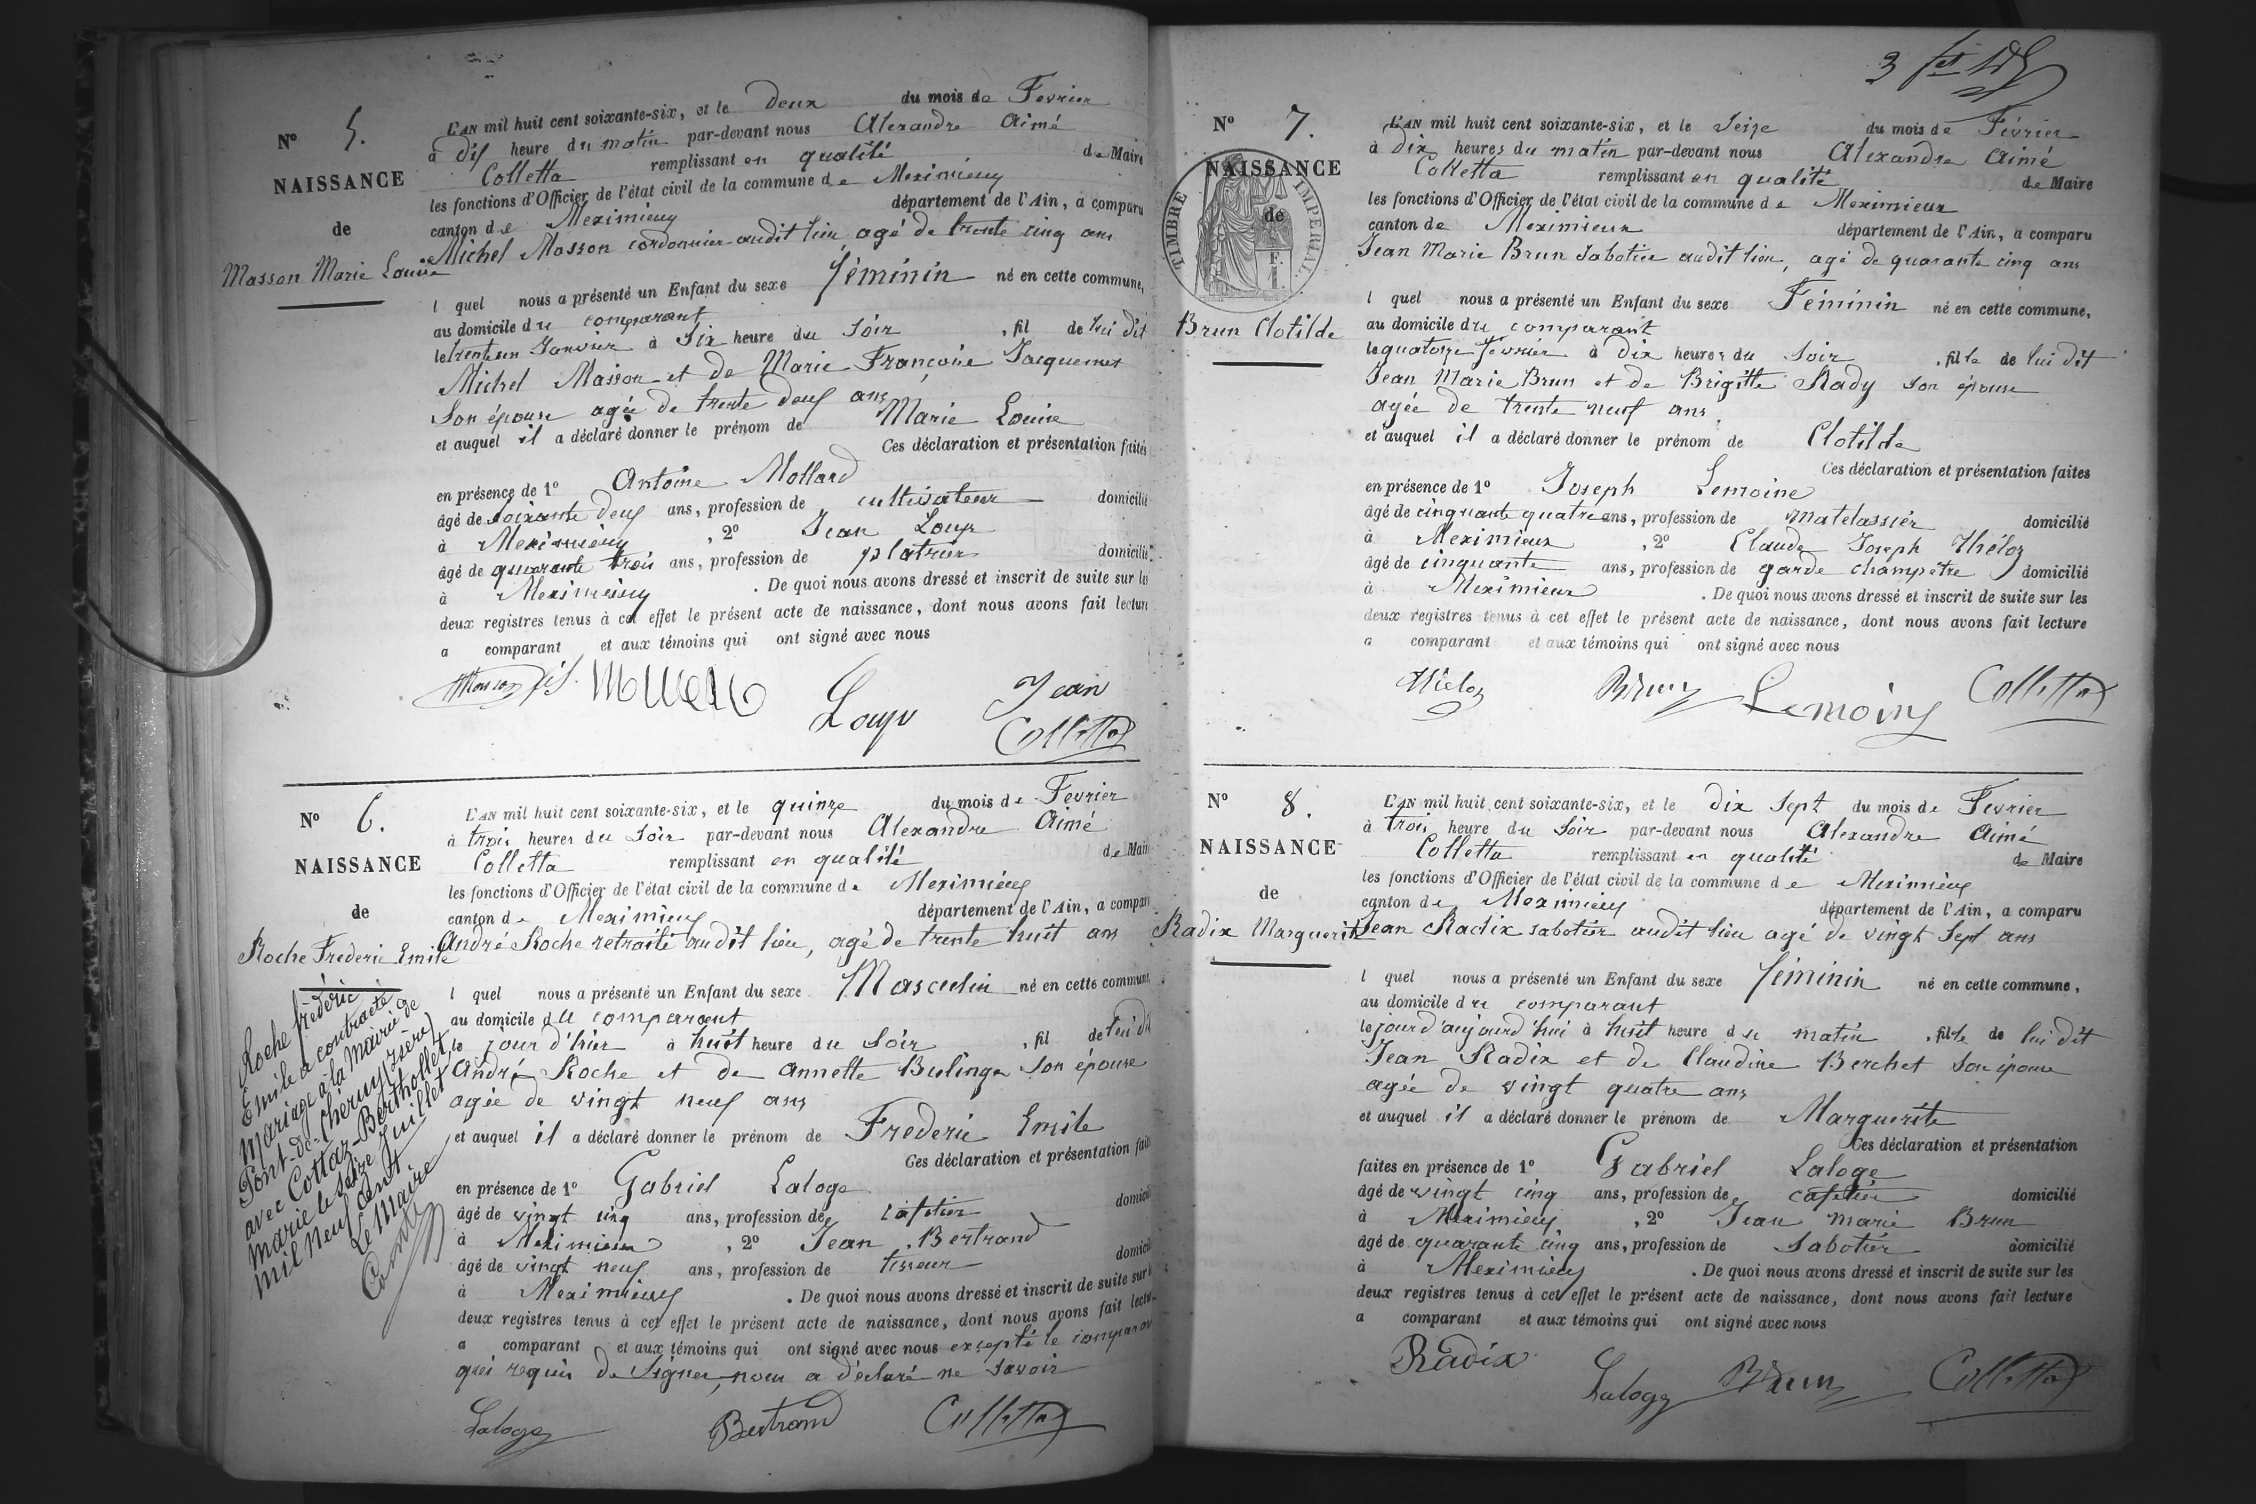 N° 5.
NAISSANCE
de
Masson Marie Louise
L'AN mil huit cent soixante-six, et le deux du mois de Fevrier
à dix heure du matin par-devant nous Alexandre Aimé
Colletta remplissant en qualité de Maire
les fonctions d'Officier de l'état civil de la commune de Meximieux
canton de Meximieux département de l'Ain, a comparu
Michel Masson cordonnier audit lieu, agé de trente cinq ans
l quel nous a présenté un Enfant du sexe féminin né en cette commune,
au domicile du comparant
le trente un Janvier à Six heure du Soir , fil de lui dit
Michel Masson et de Marie Françoise Jacquemet
Son épouse agée de trente deux ans
et auquel il a déclaré donner le prénom de Marie Louise
Ces déclaration et présentation faites
en présence de 1° Antoine Mollard
âgé de soixante deux ans, profession de cultivateur domicilié
à Meximieux , 2° Jean Loup
âgé de quarante trois ans, profession de platrier domicilié
à Meximieux . De quoi nous avons dressé et inscrit de suite sur les
deux registres tenus à cet effet le présent acte de naissance, dont nous avons fait lecture
a comparant et aux témoins qui ont signé avec nous
Masson
Loup Jean
Colletta
N° 6.
NAISSANCE
de
Roche Frederic Emile
Roche frédéric
Emile a contracté
Mariage à la Mairie de
Pont-de-Chéruy (Isère)
avec Cottaz-Berthollet
Marie le seize Juillet
mil neuf cent
Le Maire
L'AN mil huit cent soixante-six, et le quinze du mois de Fevrier
à trois heures du Soir par-devant nous Alexandre Aimé
Colletta remplissant en qualité de Maire
les fonctions d'Officier de l'état civil de la commune de Meximieux
canton de Meximieux département de l'Ain, a comparu
André Roche retraité audit lieu, agé de trente huit ans
l quel nous a présenté un Enfant du sexe Masculin né en cette commune
au domicile du comparant
le jour d'hier à huit heure du Soir , fil de lui dit
André Roche et de Annette Bulinge Son épouse
agée de vingt neuf ans
et auquel il a déclaré donner le prénom de Frederic Emile
Ces déclaration et présentation faites
en présence de 1° Gabriel Laloge
âgé de vingt cinq ans, profession de cafetier domicilié
à Meximieux , 2° Jean Bertrand
âgé de vingt neuf ans, profession de tisseur domicilié
à Meximieux . De quoi nous avons dressé et inscrit de suite sur les
deux registres tenus à cet effet le présent acte de naissance, dont nous avons fait lecture
a comparant et aux témoins qui ont signé avec nous excepté le comparant
qui requis de Signer, nous a déclaré ne savoir
Laloge Bertrand Colletta
3
N° 7.
NAISSANCE
de
TIMBRE IMPERIAL
F.
1.
Brun Clotilde
L'AN mil huit cent soixante-six, et le Seize du mois de Février
à dix heures du matin par-devant nous Alexandre Aimé
Colletta remplissant en qualité de Maire
les fonctions d'Officier de l'état civil de la commune de Meximieux
canton de Meximieux département de l'Ain, a comparu
Jean Marie Brun Sabotier audit lieu, agé de quarante cinq ans
l quel nous a présenté un Enfant du sexe Féminin né en cette commune,
au domicile du comparant
le quatorze février à dix heures du Soir , fille de lui dit
Jean Marie Brun et de Brigitte Rady Son épouse
agée de trente neuf ans
et auquel il a déclaré donner le prénom de Clotilde
Ces déclaration et présentation faites
en présence de 1° Joseph Lemoine
âgé de cinquante quatre ans, profession de matelassier domicilié
à Meximieux , 2° Claude Joseph Théloz
âgé de cinquante ans, profession de garde champêtre domicilié
à Meximieux . De quoi nous avons dressé et inscrit de suite sur les
deux registres tenus à cet effet le présent acte de naissance, dont nous avons fait lecture
a comparant et aux témoins qui ont signé avec nous
Théloz Brun Lemoine Colletta
N° 8.
NAISSANCE
de
Radix Marguerite
L'AN mil huit cent soixante-six, et le dix Sept du mois de Fevrier
à trois heure du Soir par-devant nous Alexandre Aimé
Colletta remplissant en qualité de Maire
les fonctions d'Officier de l'état civil de la commune de Meximieux
canton de Meximieux département de l'Ain, a comparu
Jean Radix sabotier audit lieu agé de vingt Sept ans
l quel nous a présenté un Enfant du sexe féminin né en cette commune,
au domicile du comparant
le jour d'aujourd'hui à huit heure du matin , fille de lui dit
Jean Radix et de Claudine Berchet Son épouse
agée de vingt quatre ans
et auquel il a déclaré donner le prénom de Marguerite
Ces déclaration et présentation
faites en présence de 1° Gabriel Laloge
âgé de vingt cinq ans, profession de cafetier domicilié
à Meximieux , 2° Jean marie Brun
âgé de quarante cinq ans, profession de Sabotier domicilié
à Meximieux . De quoi nous avons dressé et inscrit de suite sur les
deux registres tenus à cet effet le présent acte de naissance, dont nous avons fait lecture
a comparant et aux témoins qui ont signé avec nous
Radix Laloge Brun Colletta